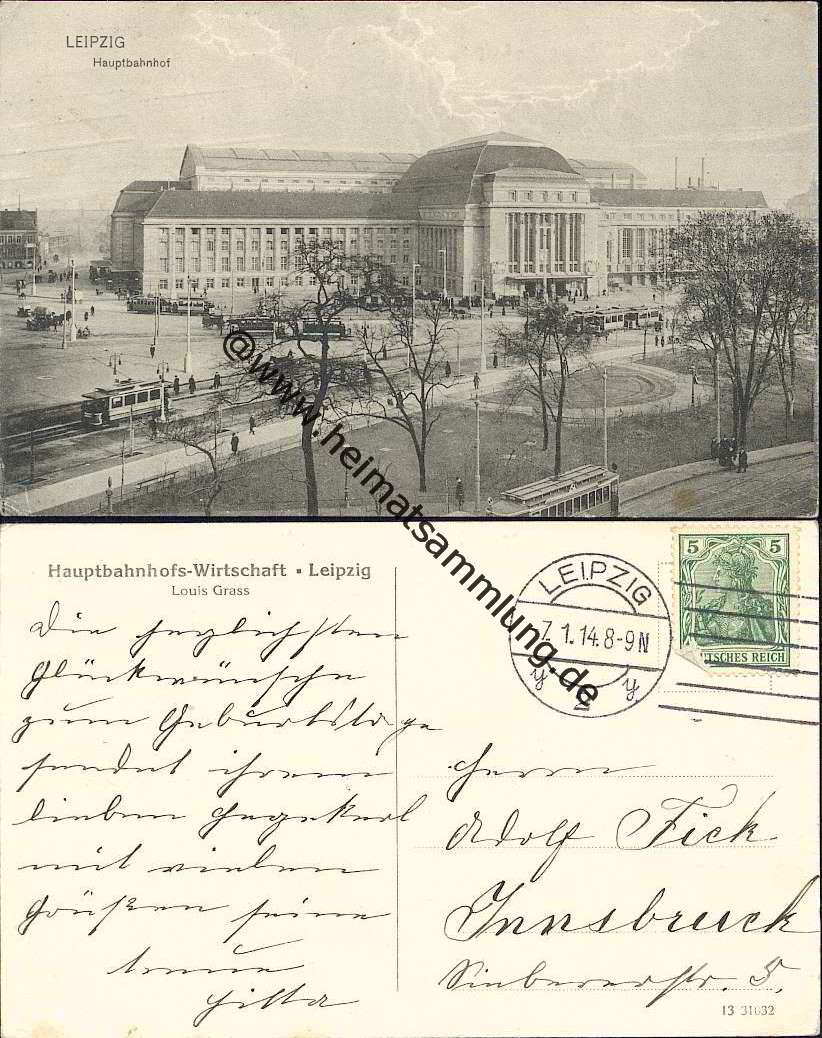 LEIPZIG
Hauptbahnhof
@www.heimatsammlung.de
Hauptbahnhofs-Wirtschaft ▪ Leipzig
Louis Grass
Die herzlichsten
Glückwünsche
zum Geburtstage
sendet ihrem
lieben Herzekerl
mit vielen
Grüßen seine
treue
Hilla
LEIPZIG
7.1.14.8-9N
5 5
TSCHES REICH
Herrn
Adolf Fick
Innsbruck
Siebererstr. 5.
13 31032